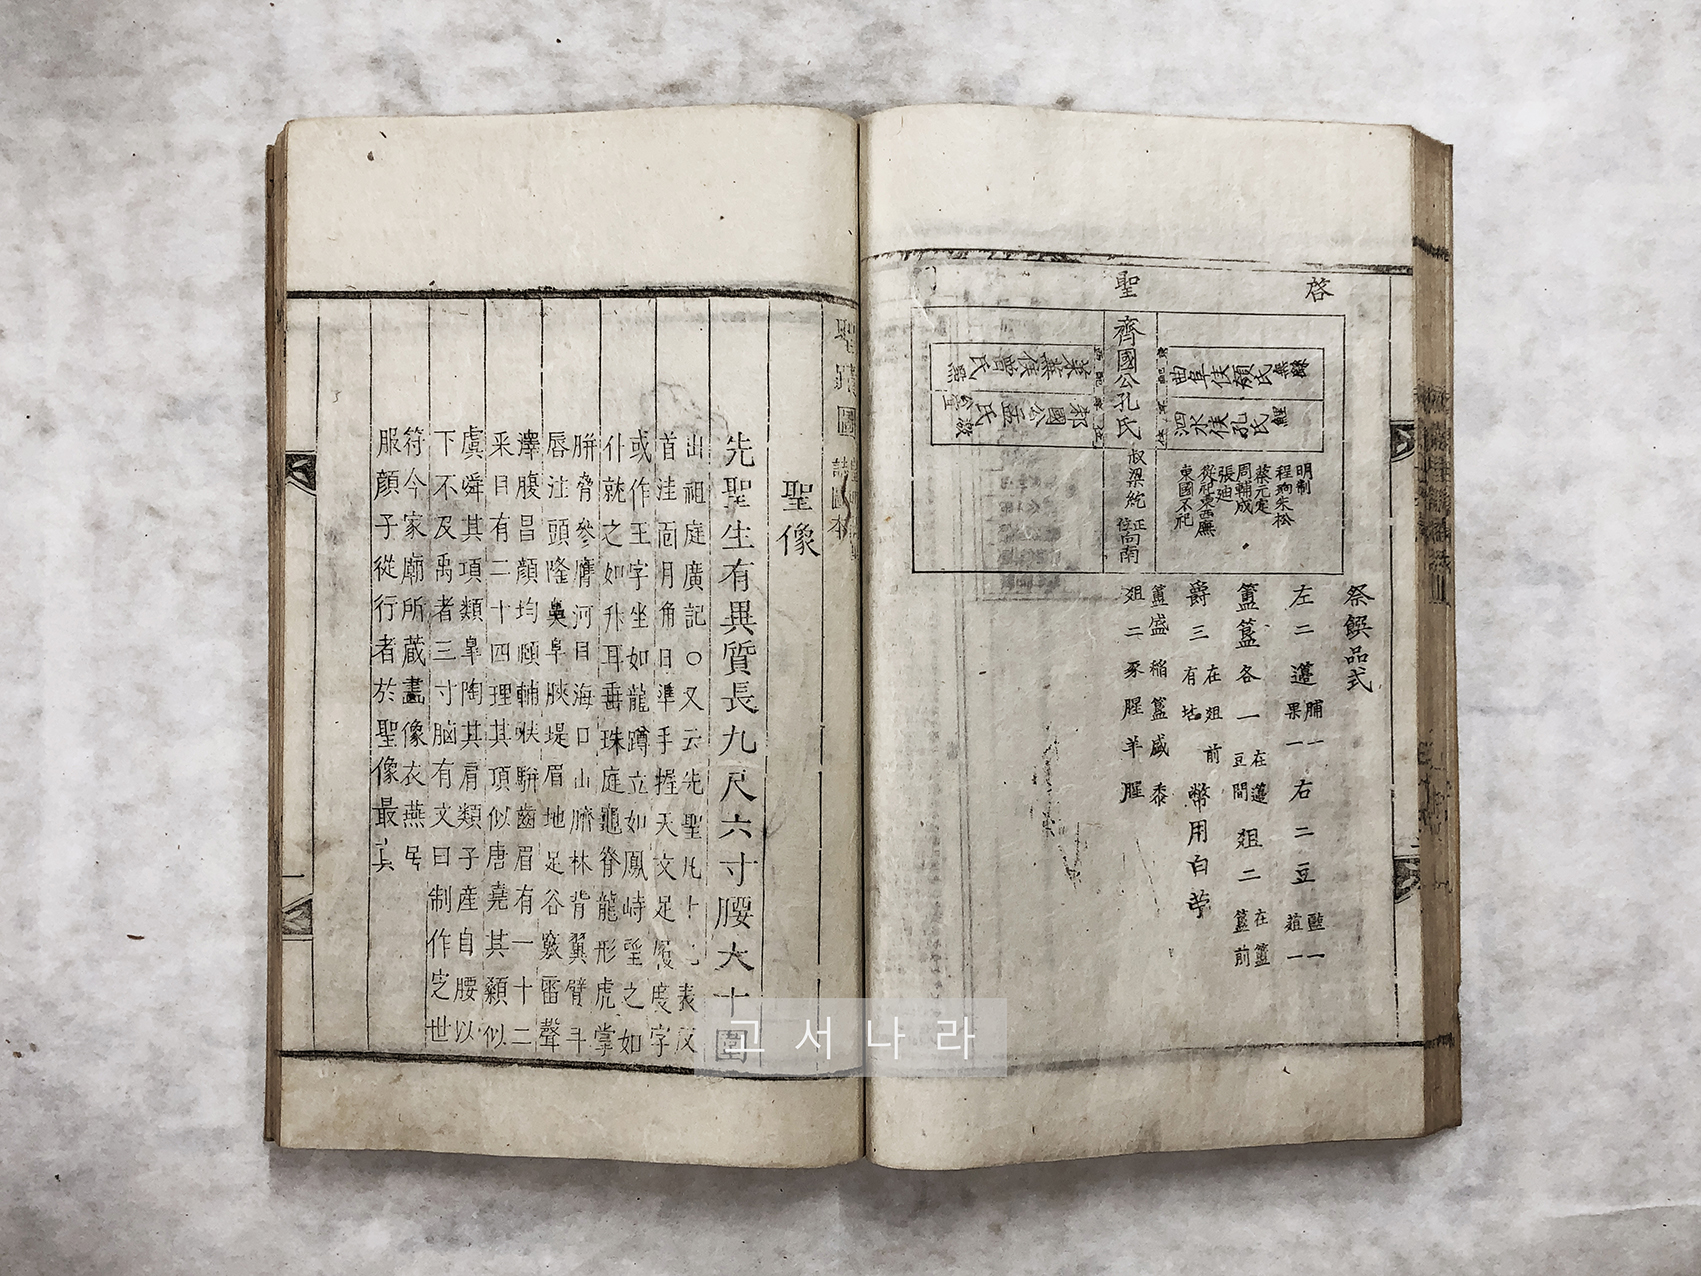 啓聖
齊國公孔氏
叔梁紇
正位向南
曲阜侯顔氏無繇
泗水侯孔氏鯉
萊蕪侯曾氏點
邾國公孟氏激
明制
程珦朱松
蔡元定
周輔成
張迪
從祀東西廡
東國不祀
祭饌品式
左二籩 脯一 果一 右二豆 醢一 葅一
簠簋各一 在籩豆間 俎二 在簠簋前
爵三 在俎前 有坫 幣用白苧
簠盛稲簋盛黍
俎二豕腥羊腥
聖蹟圖
聖像
先聖生有異質長九尺六寸腰大十圍
出祖庭廣記○又云先聖凡
首洼面月角日準手握天文足履度字
或作王字坐如龍蹲立如鳳峙望之如
仆就之如升耳垂珠庭龜脊龍形虎掌
胼脅參膺河目海口山臍林背翼臂斗
唇注頭隆鼻阜脥堤眉地足谷竅雷聲
澤腹昌顔均頤輔喉駢齒眉有一十二
采目有二十四理其頂似唐堯其顙似
虞舜其項類皐陶其肩類子産自腰以
下不及禹者三寸腦有文曰制作定世
符今家廟所蔵畫像衣燕居
服顔子從行者於聖像最真
고서나라